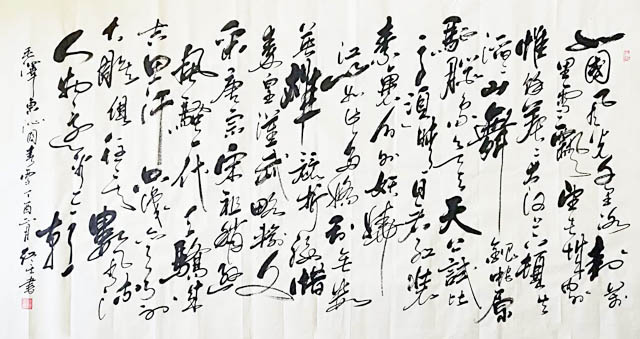 北国风光千里冰封万
里雪飘望长城内外
惟余莽莽大河上下顿失
滔滔山舞银蛇原
驰蜡象欲与天公试比
高须晴日看红装
素裹分外妖娆
江山如此多娇引无数
英雄竞折腰惜
秦皇汉武略输文
采唐宗宋祖稍逊
风骚一代天骄成
吉思汗只识弯弓射
大雕俱往矣数风流
人物还看今朝
毛泽东沁园春雪丁酉月书